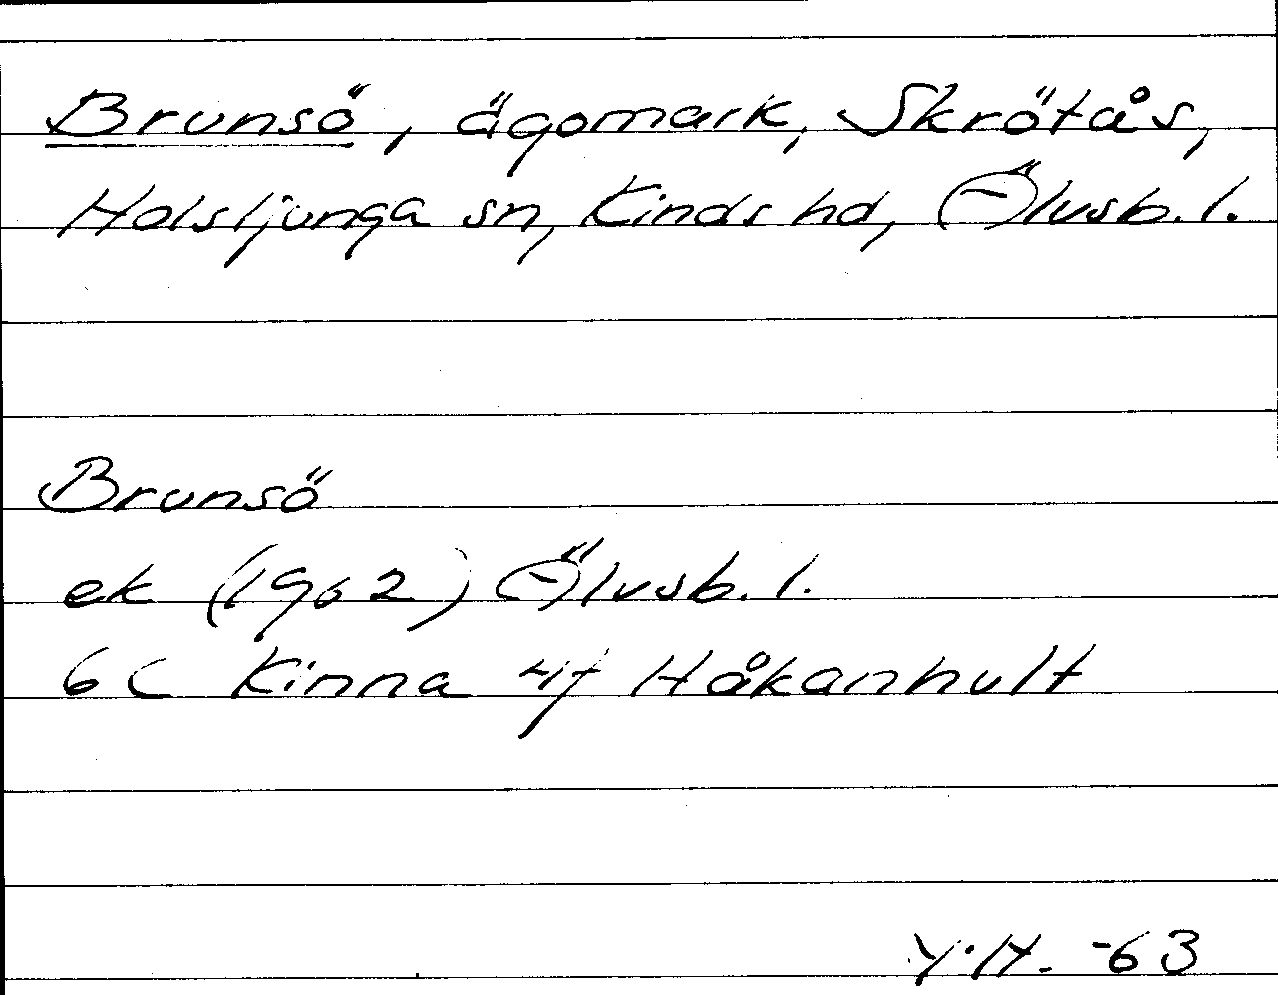 Brunsö, ägomark, Skrötås,
Holsljunga sn, Kinds hd, Älvsb. l.
Brunsö
ek (1962) Älvsb. l.
6C Kinna 4f Håkanhult
Y.H. -63